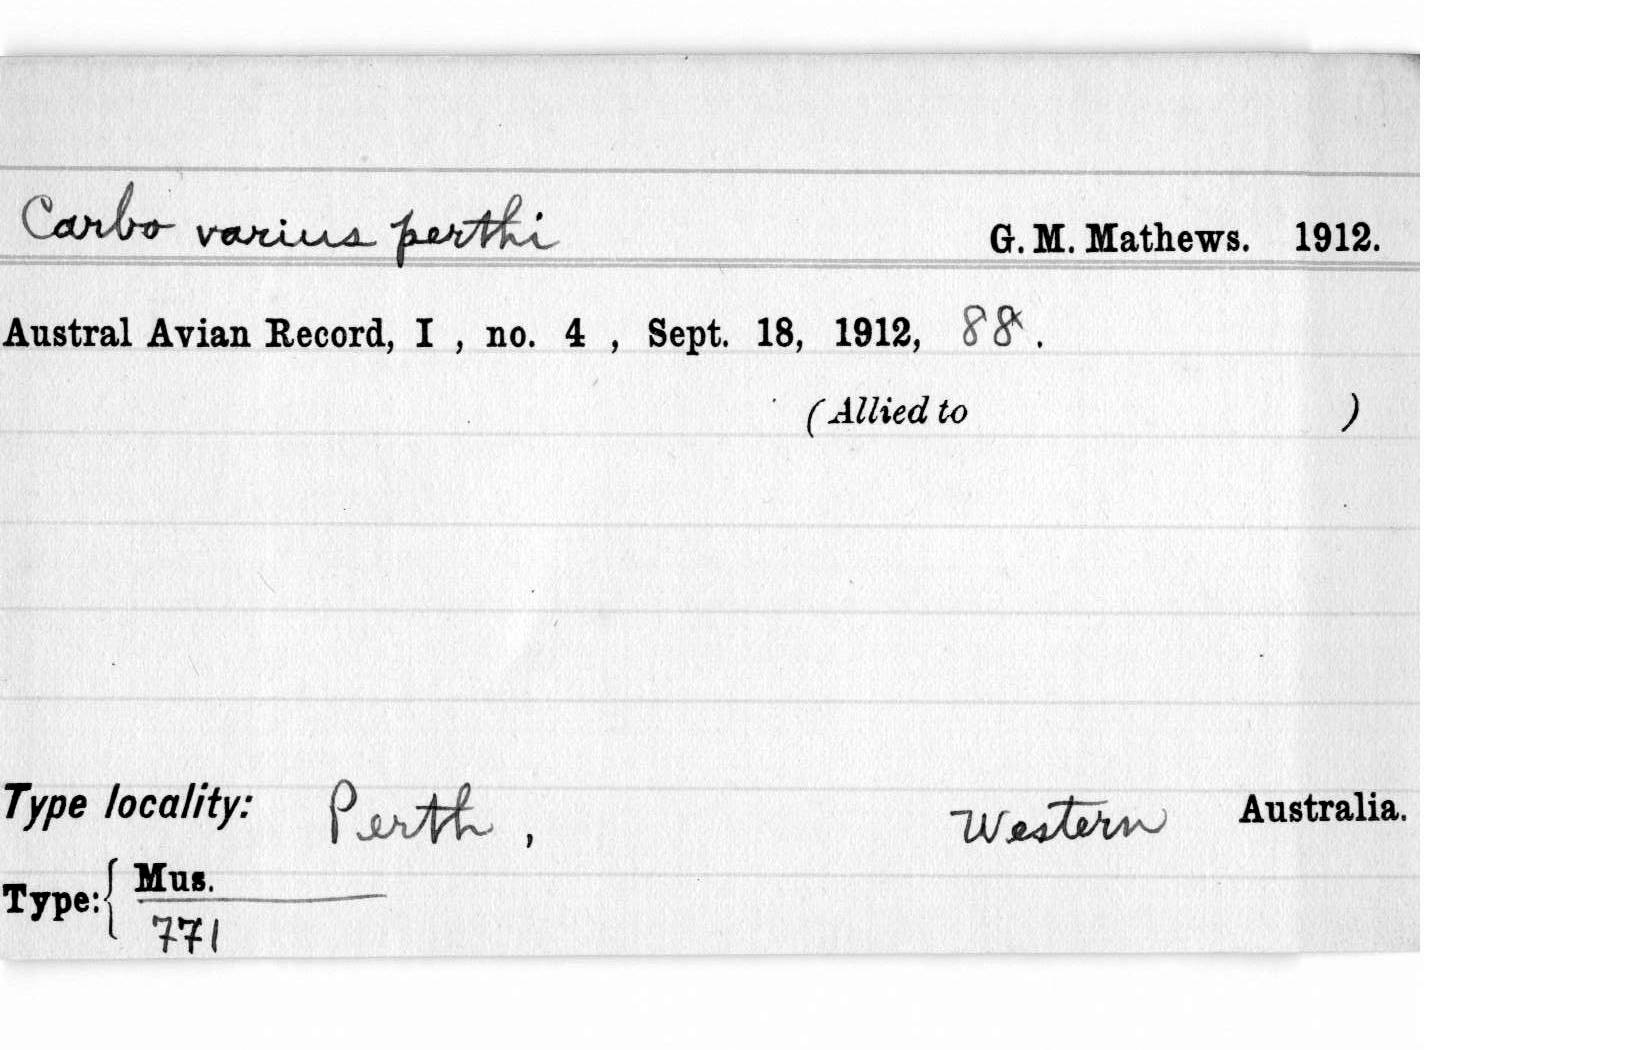 Carbo varius perthi G. M. Mathews. 1912.
Austral Avian Record, I , no. 4 , Sept. 18, 1912, 88.
(Allied to )
Type locality: Perth , Western Australia.
Type: { Mus.
771